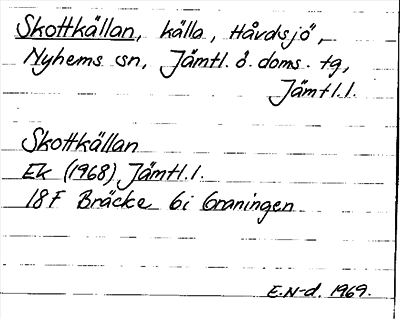 Skottkällan, källa, Håvdsjö,
Nyhems sn, Jämtl. ö. doms. tg,
Jämtl. l.
Skottkällan
Ek (1968) Jämtl. l.
18 F Bräcke 6i Graningen
E.N-d. 1969.